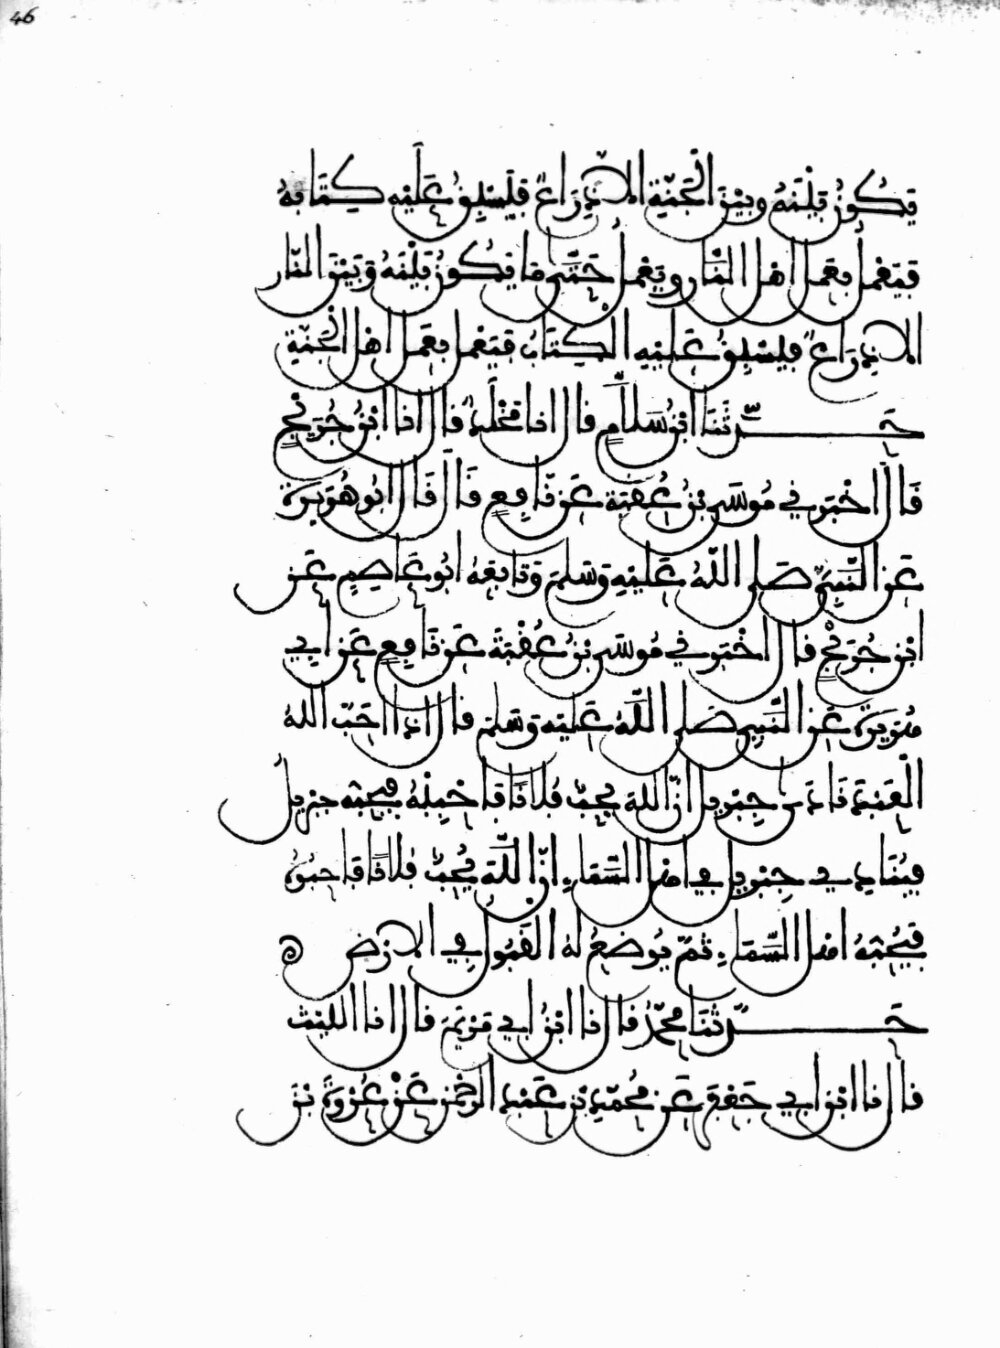 46
يكون بينه وبين الجنة الا ذراع فيسبق عليه كتابه
فيعمل بعمل اهل النار ويعمل حتى ما يكون بينه وبين النار
الا ذراع فيسبق عليه الكتاب فيعمل بعمل اهل الجنة
حدثنا ابن سلام قال انا مخلد قال انا ابن جريج
قال اخبرني موسى بن عقبة عن نافع قال قال ابو هريرة
عن النبي صلى الله عليه وسلم وتابعه ابو عاصم عن
ابن جريج قال اخبرني موسى بن عقبة عن نافع عن ابي
هريرة عن النبي صلى الله عليه وسلم قال اذا احب الله
العبد نادى جبريل ان الله يحب فلانا فاحببه فيحبه جبريل
فينادي جبريل في اهل السماء ان الله يحب فلانا فاحبوه
فيحبه اهل السماء ثم يوضع له القبول في الارض
حدثنا محمد قال نا ابن ابي مريم قال انا الليث
قال نا ابن ابي جعفر عن محمد بن عبد الرحمن عن عروة بن